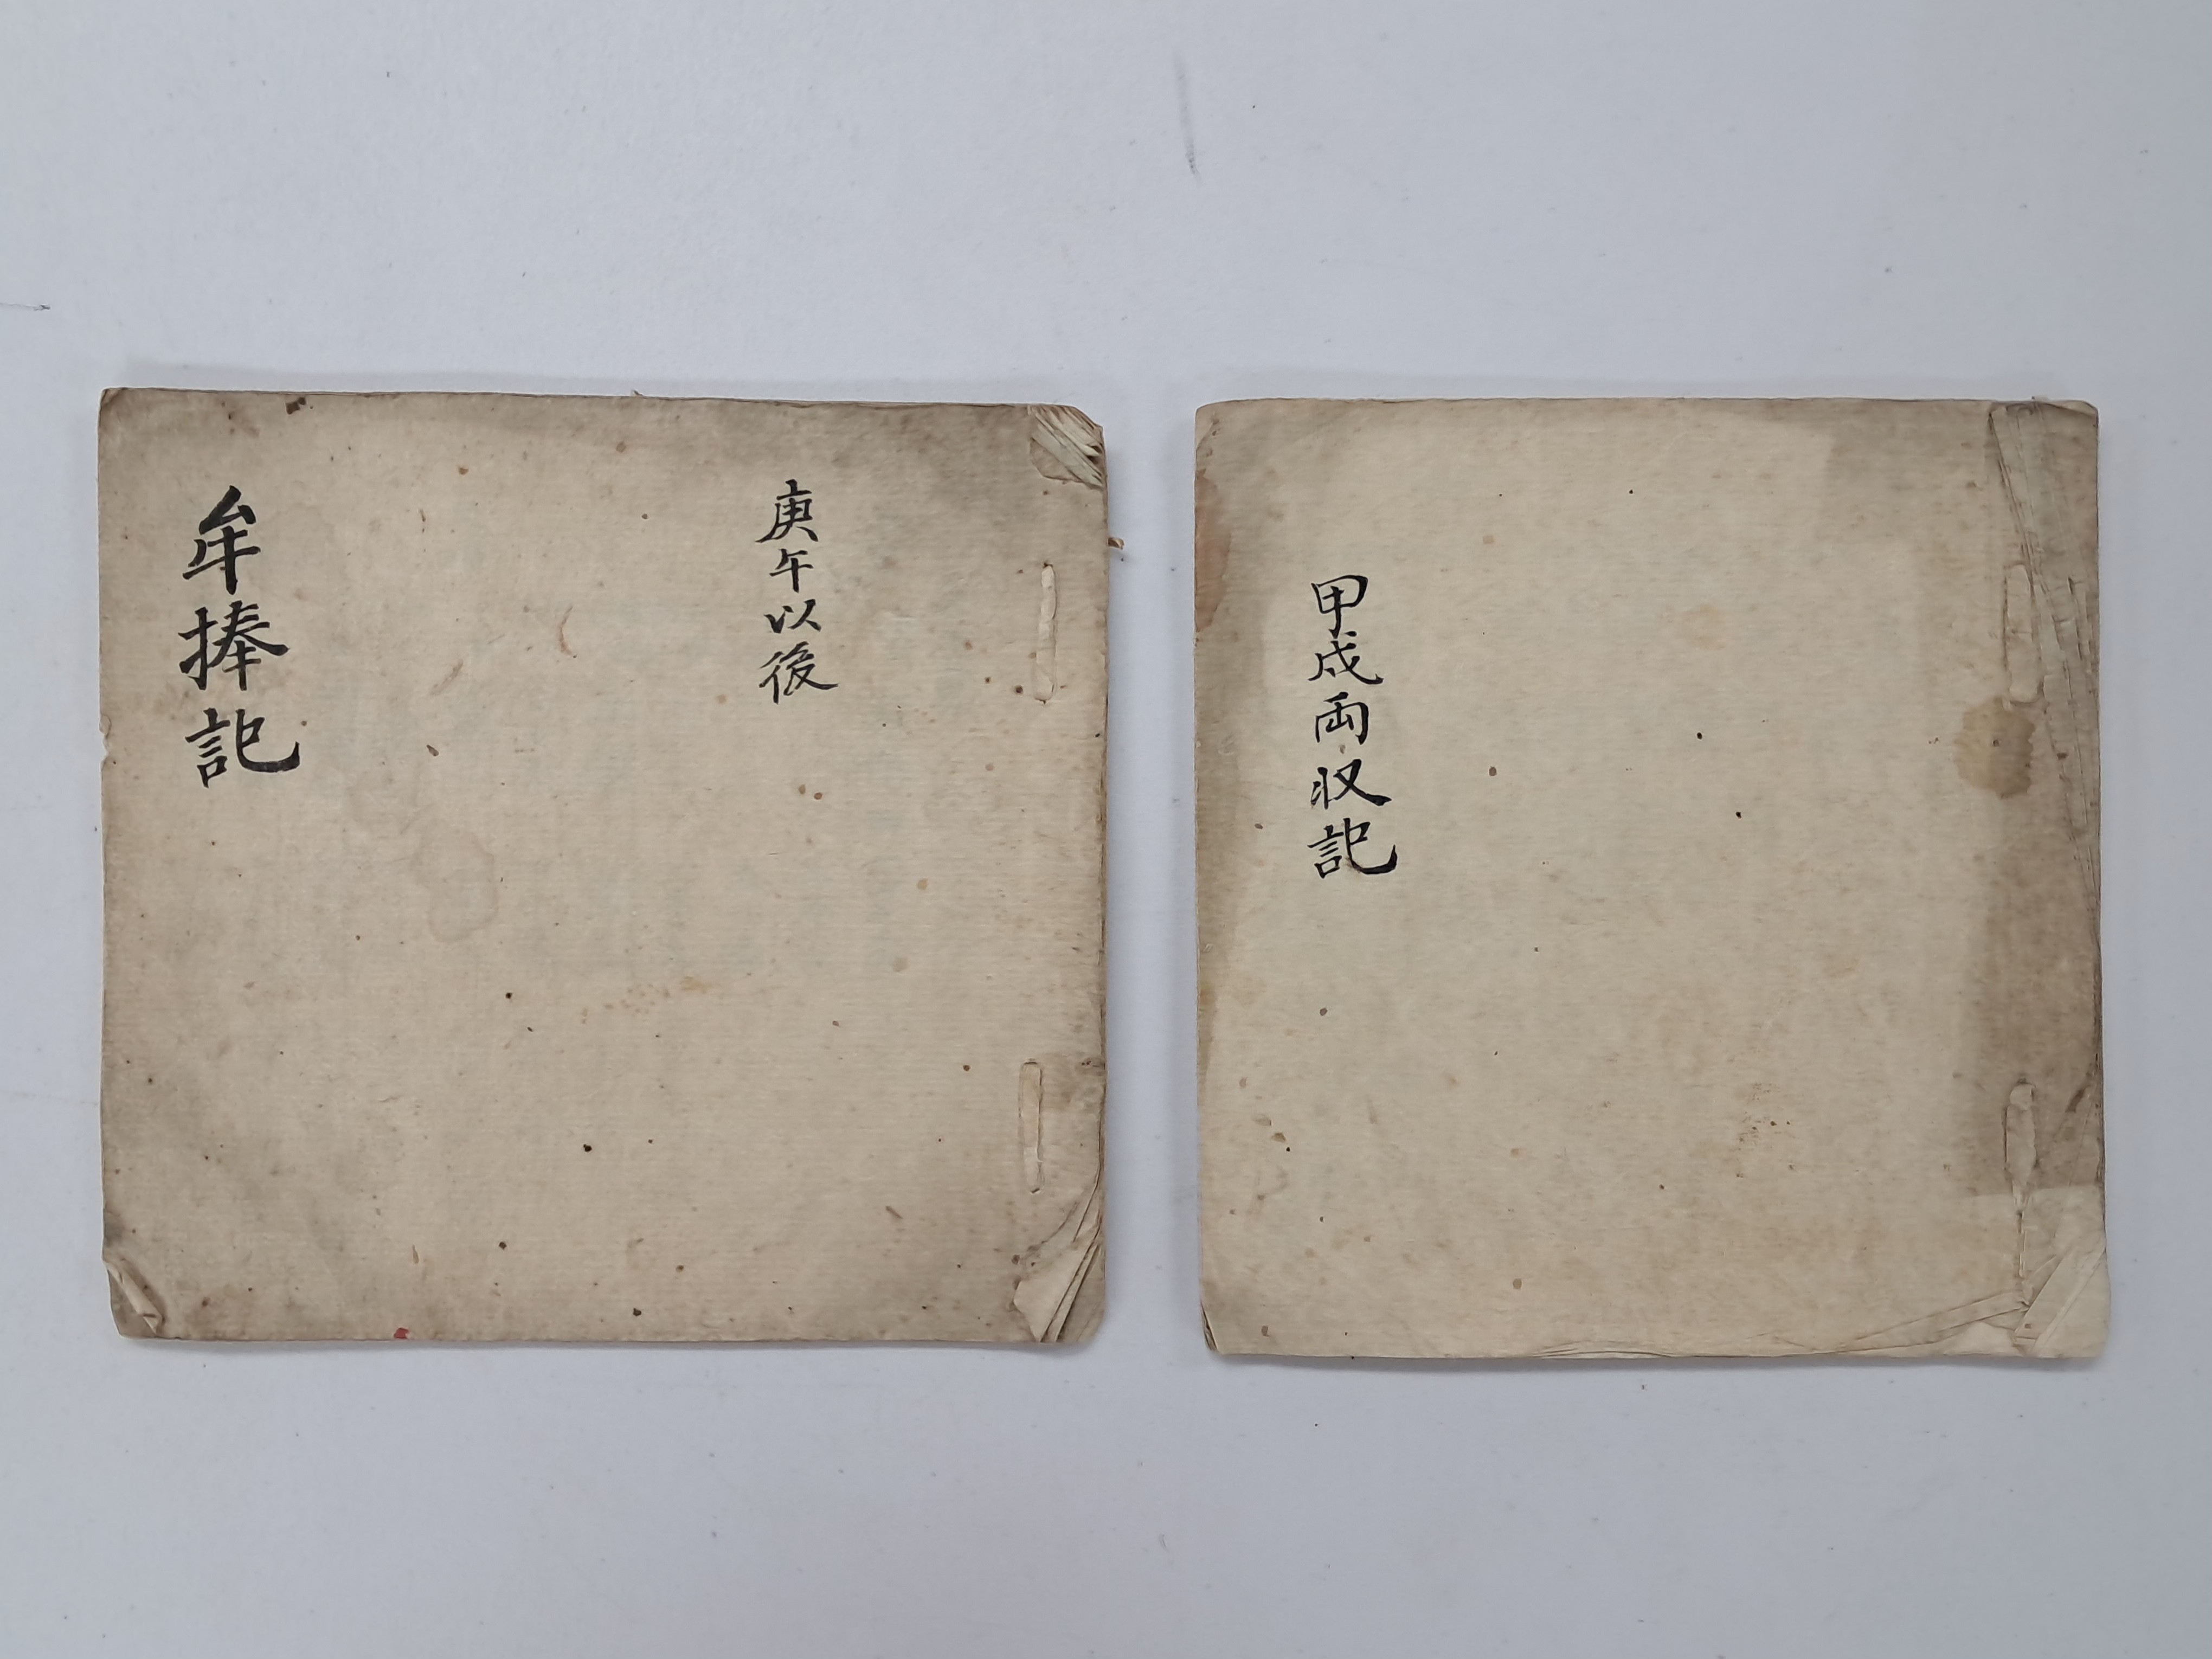 庚午以後
牟捧記
甲戌兩収記